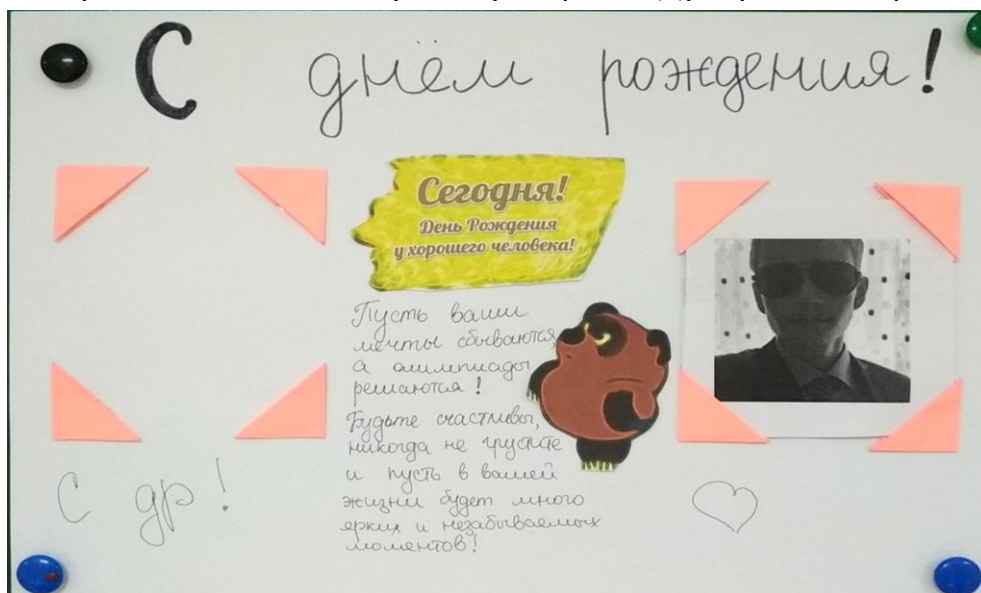 С днём рождения!
Сегодня!
День Рождения
у хорошего человека!
Пусть ваши
мечты сбываются,
а олимпиады
решаются!
Будьте счастливы,
никогда не грустите
и пусть в вашей
жизни будет много
ярких и незабываемых
моментов!
С др!